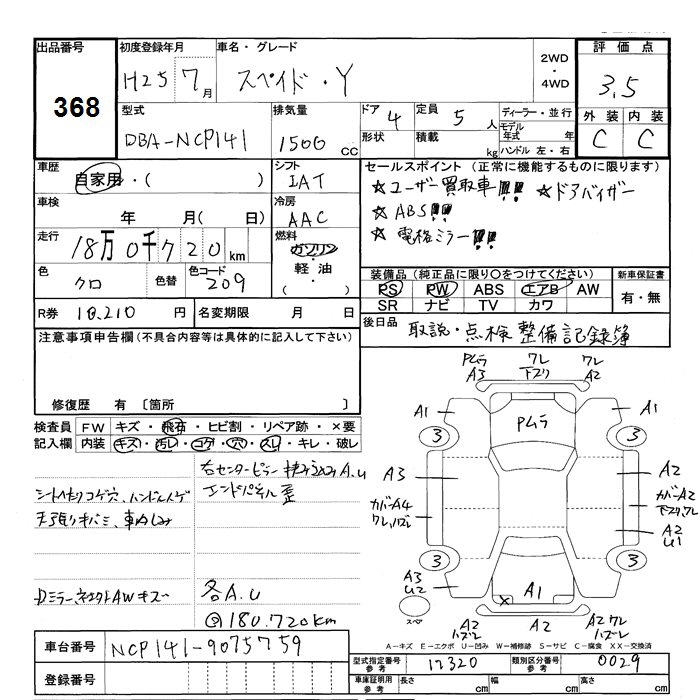 出品番号
368
初度登録年月
H25 7月
車名・グレード
スペイド・Y
2WD
・
4WD
評価点
3.5
型式
DBA-NCP141
排気量
1500 CC
ドア 4
形状
定員 5 人
積載 kg
ディーラー・並行
モデル年式 年
ハンドル 左・右
外装 内装
C C
車歴
自家用・( )
シフト
IAT
車検
年 月( 日)
冷房
AAC
走行
18万0千720km
燃料
ガソリン
・
軽油
・
( )
色
クロ
色替
色コード
209
R券 10,210 円
名変期限 月 日
セールスポイント (正常に機能するものに限ります)
☆ユーザー買取車!!! ☆ドアバイザー
☆ABS!!!
☆電格ミラー!!!
装備品 (純正品に限り○をつけてください)
新車保証書
PS PW ABS エアB AW
SR ナビ TV カワ
有・無
後日品
取説・点検整備記録簿
注意事項申告欄 (不具合内容等は具体的に記入して下さい)
修復歴 有 〔箇所 〕
検査員記入欄
FW キズ・飛石・ヒビ割・リペア跡・×要
内装 キズ・汚レ・コゲ・穴・スレ・キレ・破レ
右センターピラー A.U
エンドパネル歪
Dミラー、AWキズ
各A.U
@180.720km
Pムラ
A3
ワレ
下スリ
ワレ
A2
A1
Pムラ
A1
3
3
A3
A2
カバーA4
ワレ、ハズレ
カバーA2
下スリ、ワレ
A2
U1
3
3
A3
U2
A1
スペア
A2
ハズレ
A2
A2ワレ
ハズレ
A－キズ E－エクボ U－凹み W－補修跡 S－サビ C－腐食 XX－交換済
車台番号
NCP141-9075759
登録番号
型式指定番号
参考
17320
類別区分番号
参考
0029
車庫証明用
参考
長さ cm
幅 cm
高さ cm